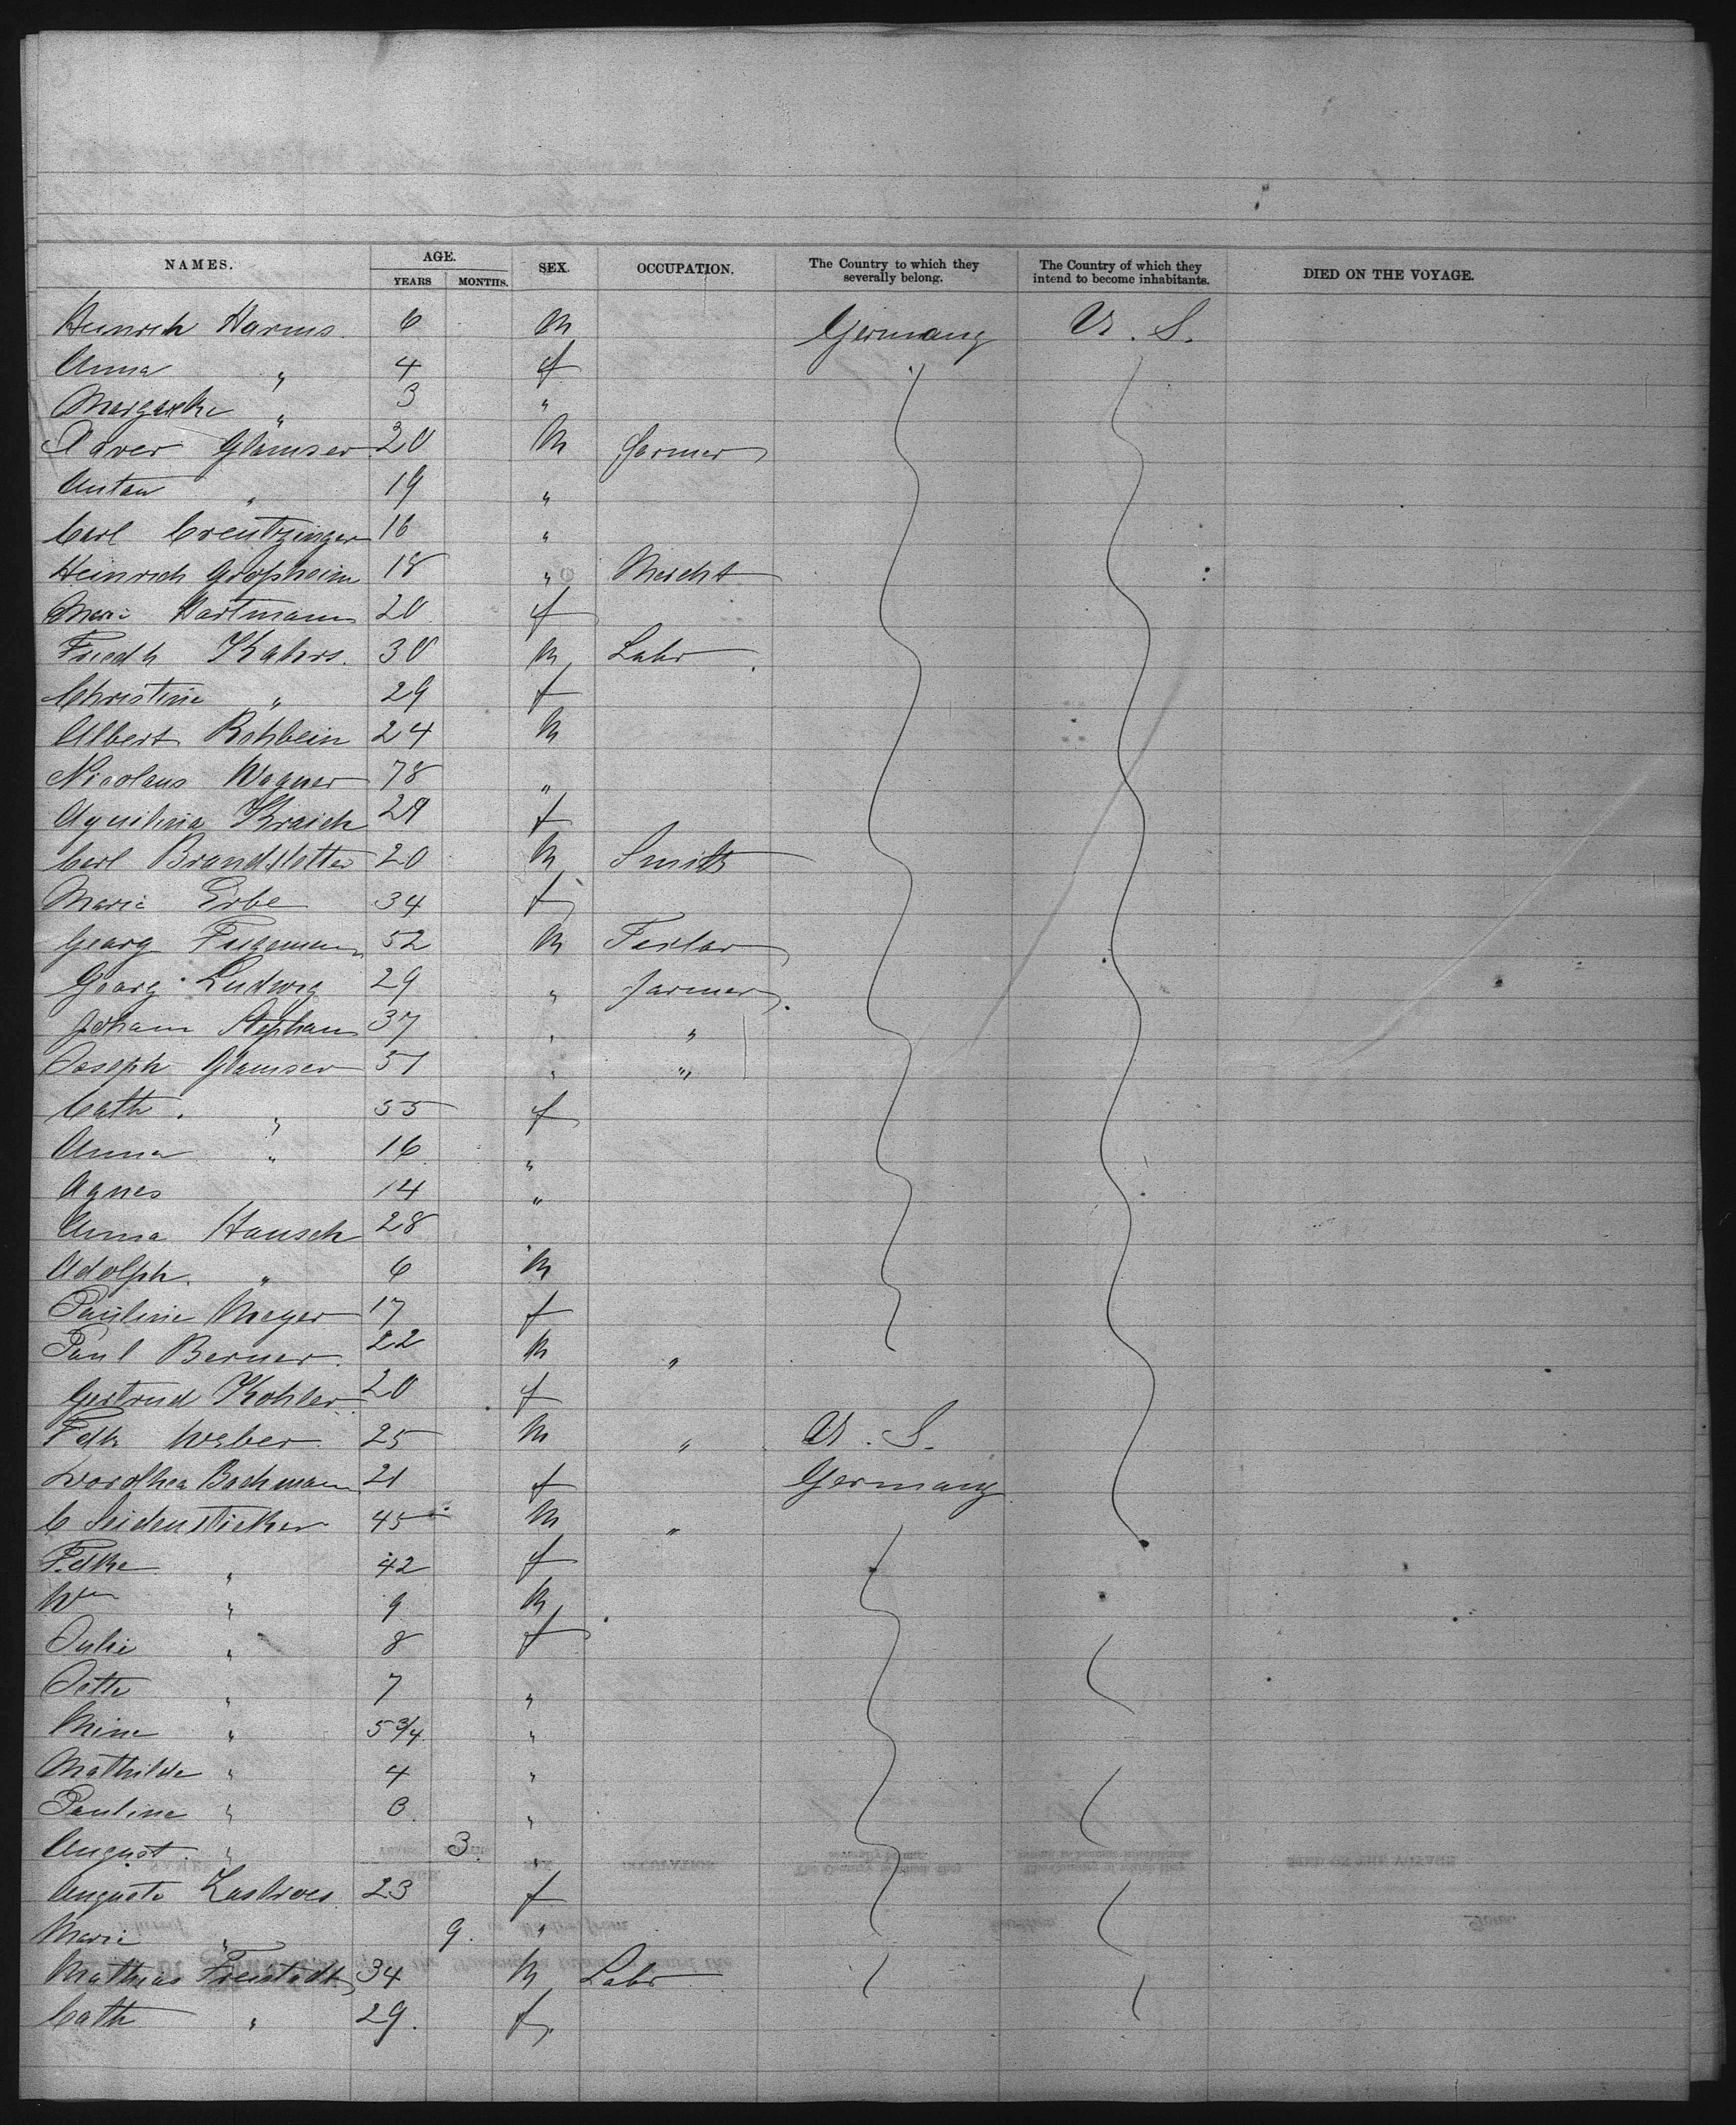 NAMES. AGE. SEX. OCCUPATION. The Country to which they severally belong. The Country of which they intend to become inhabitants. DIED ON THE VOYAGE.
YEARS MONTHS.
Heinrich Harms. 6 m Germany U. S.
Anna " 4 f
Margarethe " 3 "
Xaver Glamser 20 m farmer
Anton " 19 "
Carl Creutzinger 16 "
Heinrich Großheim 18 " Mercht
Marie Hartmann 20 f
Friedh Kahrs. 30 m Labr
Christine " 29 f
Albert Rehbein 24 m
Nicolaus Wagner 78 "
Aquilina Kraich 29 f
Carl Brandstetter 20 m Smith
Maria Erbe 34 f
Georg 52 m Teilor
Georg Ludwig 29 " farmer
Johann Stephan 37 " "
Joseph Glamser 51 " "
Cath. " 55 f
Anna " 16 "
Agnes 14 "
Anna Hausch 28
Adolph. " 6 m
Pauline Meyer 17 f
Paul Berner. 22 m "
Gertrud Kohler. 20 f
Fdk Weber. 25 m " U. S.
Dorothea Bachmann 21 f Germany
C Seidensticker 45 m "
Fdke " 42 f
Wm " 9 m
Julie " 8 f
Jette " 7 "
Mine " 5 3/4 "
Mathilde " 4 "
Pauline " 3. "
August. " 3. "
Auguste 23 f
Marie " 9. "
Mathias Freistadt 34 m Labr
Cath " 29. f.